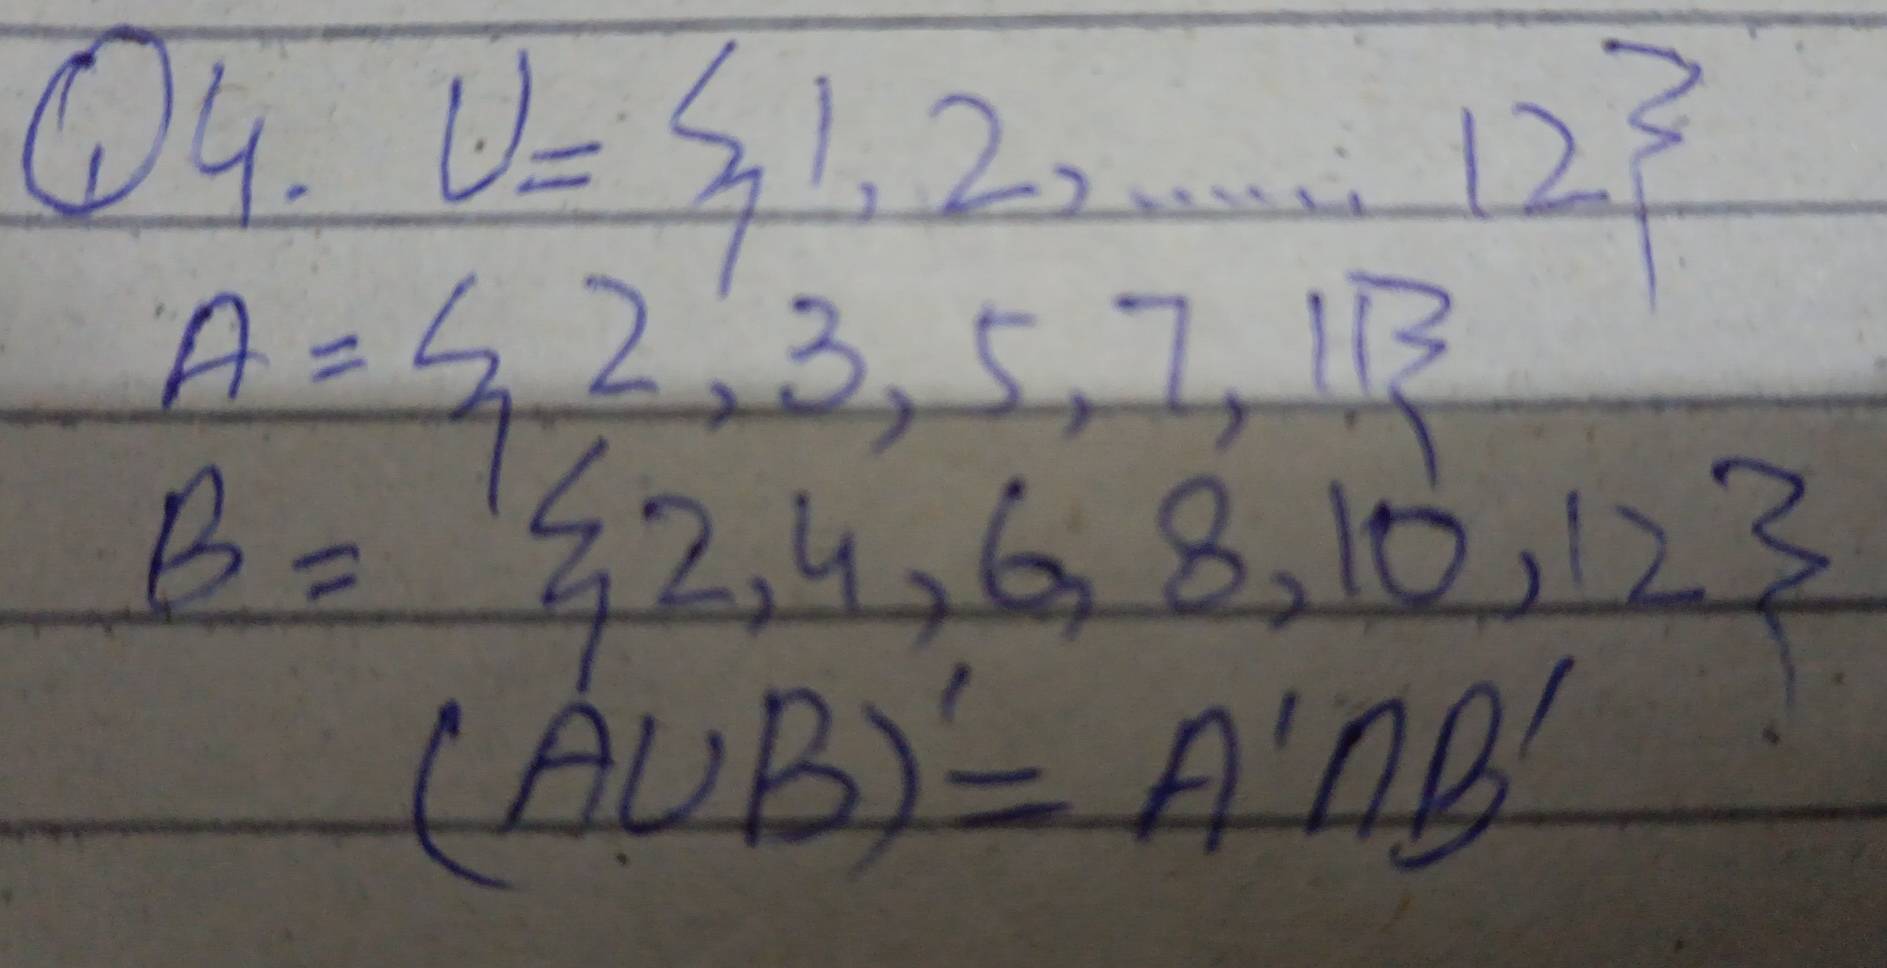 Q4. U = {1, 2, ...... 12}
A = {2, 3, 5, 7, 11}
B = {2, 4, 6, 8, 10, 12}
(A∪B)' = A'∩B'